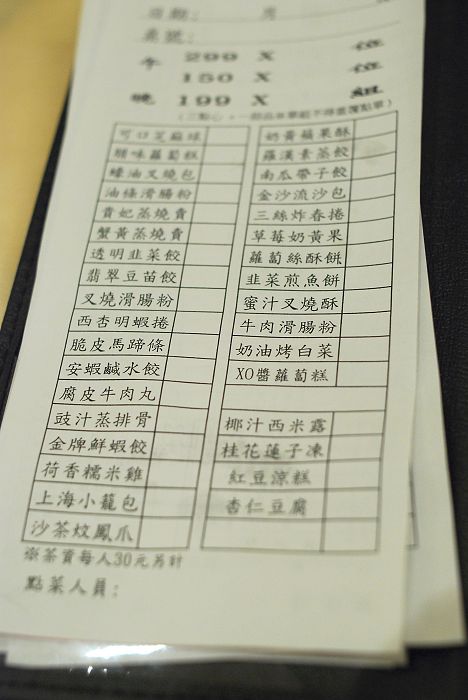 桌號：
午 299 X 位
150 X 位
晚 199 X 組
可口芝麻球
臘味蘿蔔糕
蠔油叉燒包
油條滑腸粉
貴妃蒸燒賣
蟹黃蒸燒賣
透明韭菜餃
翡翠豆苗餃
叉燒滑腸粉
西杏明蝦捲
脆皮馬蹄條
安蝦鹹水餃
腐皮牛肉丸
豉汁蒸排骨
金牌鮮蝦餃
荷香糯米雞
上海小籠包
沙茶炆鳳爪
奶黃蘋果酥
羅漢素蒸餃
南瓜帶子餃
金沙流沙包
三絲炸春捲
草莓奶黃果
蘿蔔絲酥餅
韭菜煎魚餅
蜜汁叉燒酥
牛肉滑腸粉
奶油烤白菜
XO醬蘿蔔糕
椰汁西米露
桂花蓮子凍
紅豆涼糕
杏仁豆腐
※茶資每人30元另計
點菜人員：